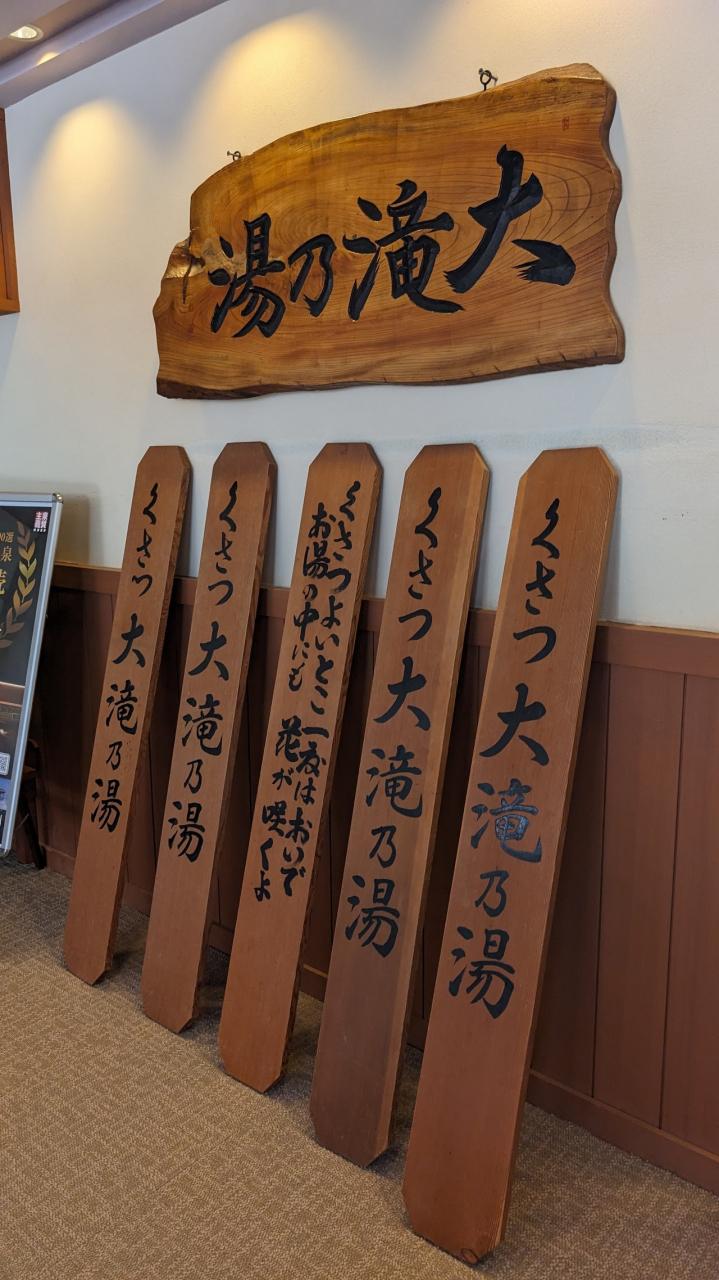 大滝乃湯
くさつ 大滝乃湯
くさつ 大滝乃湯
くさつよいとこ 一度は おいで
お湯の中にも 花が 咲くよ
くさつ 大滝乃湯
くさつ 大滝乃湯